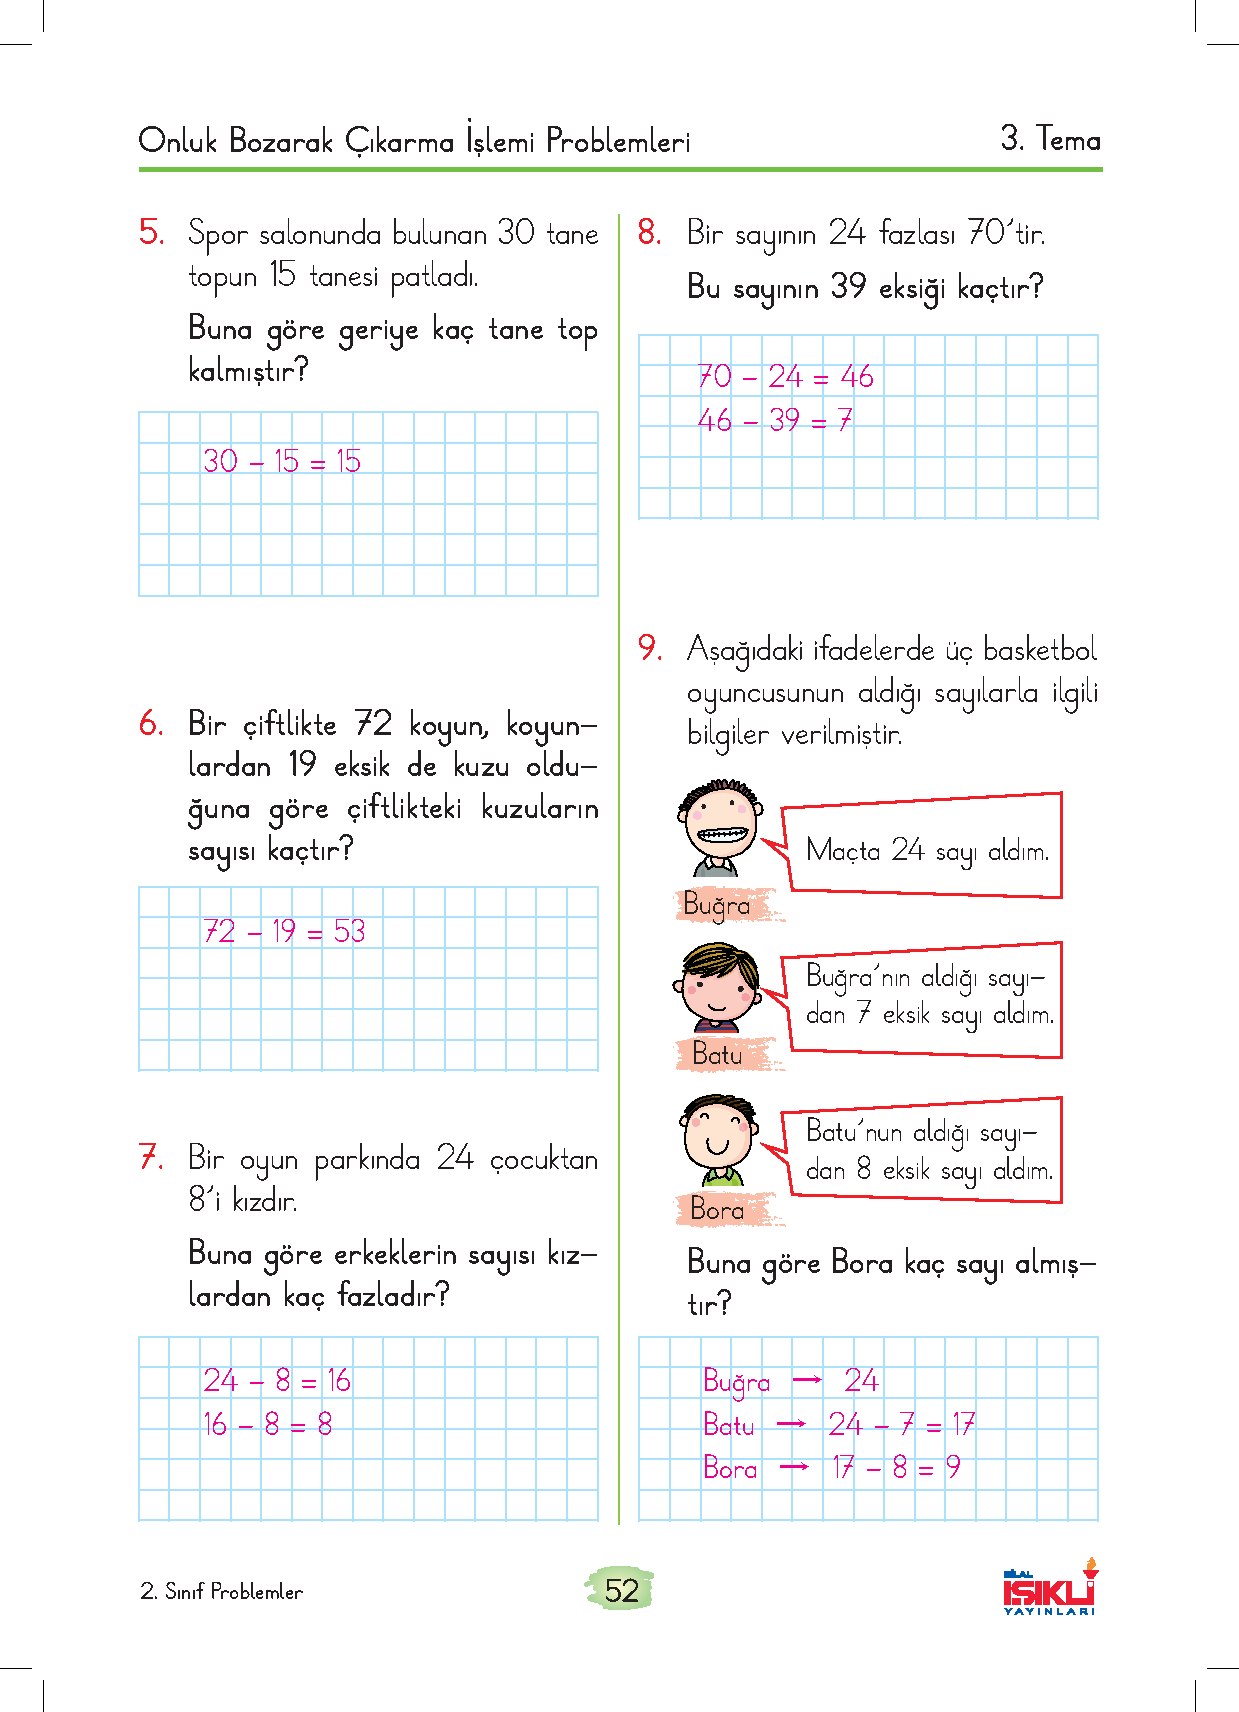 Onluk Bozarak Çıkarma İşlemi Problemleri
3. Tema
5. Spor salonunda bulunan 30 tane
topun 15 tanesi patladı.
Buna göre geriye kaç tane top
kalmıştır?
30 – 15 = 15
6. Bir çiftlikte 72 koyun, koyun–
lardan 19 eksik de kuzu oldu–
ğuna göre çiftlikteki kuzuların
sayısı kaçtır?
72 – 19 = 53
7. Bir oyun parkında 24 çocuktan
8'i kızdır.
Buna göre erkeklerin sayısı kız–
lardan kaç fazladır?
24 – 8 = 16
16 – 8 = 8
8. Bir sayının 24 fazlası 70'tir.
Bu sayının 39 eksiği kaçtır?
70 – 24 = 46
46 – 39 = 7
9. Aşağıdaki ifadelerde üç basketbol
oyuncusunun aldığı sayılarla ilgili
bilgiler verilmiştir.
Maçta 24 sayı aldım.
Buğra
Buğra'nın aldığı sayı–
dan 7 eksik sayı aldım.
Batu
Batu'nun aldığı sayı–
dan 8 eksik sayı aldım.
Bora
Buna göre Bora kaç sayı almış–
tır?
Buğra → 24
Batu → 24 – 7 = 17
Bora → 17 – 8 = 9
2. Sınıf Problemler
52
BİLAL
IŞIKLI
YAYINLARI